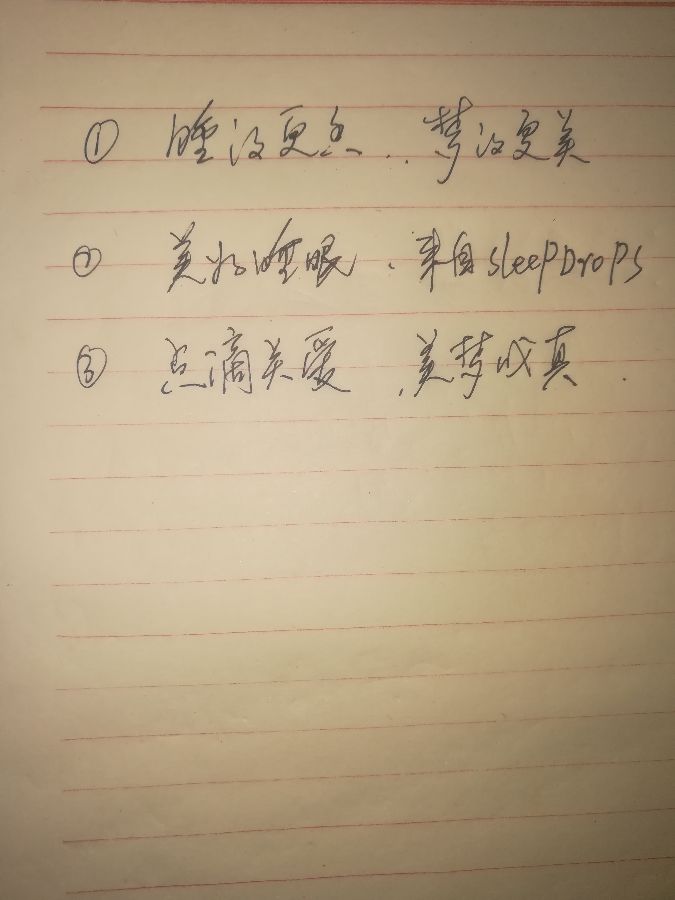 ① 睡没更怎..梦没更美
② 美好睡眠、来自sleepDrops
③ 点滴关爱 美梦成真.